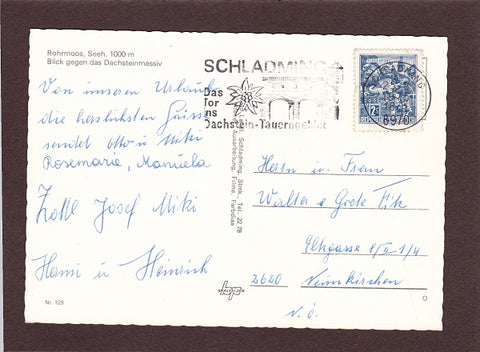 Rohrmoos, Seeh. 1000 m
Blick gegen das Dachsteinmassiv
Von unserem Urlaub
die herzlichsten Grüsse
sendet Otto u. Miki
Rosemarie, Manuela
Josef Miki
Hermi u. Heinrich
Nr. 129
SCHLADMING
Das
Tor
ins
Dachstein-Tauerngebiet
8970
Schladming, Stmk., Tel. 22 78
Ausarbeitung, Filme, Farbdias
Herrn u. Frau
Walter u. Grete
2620 Neunkirchen
N.Ö.